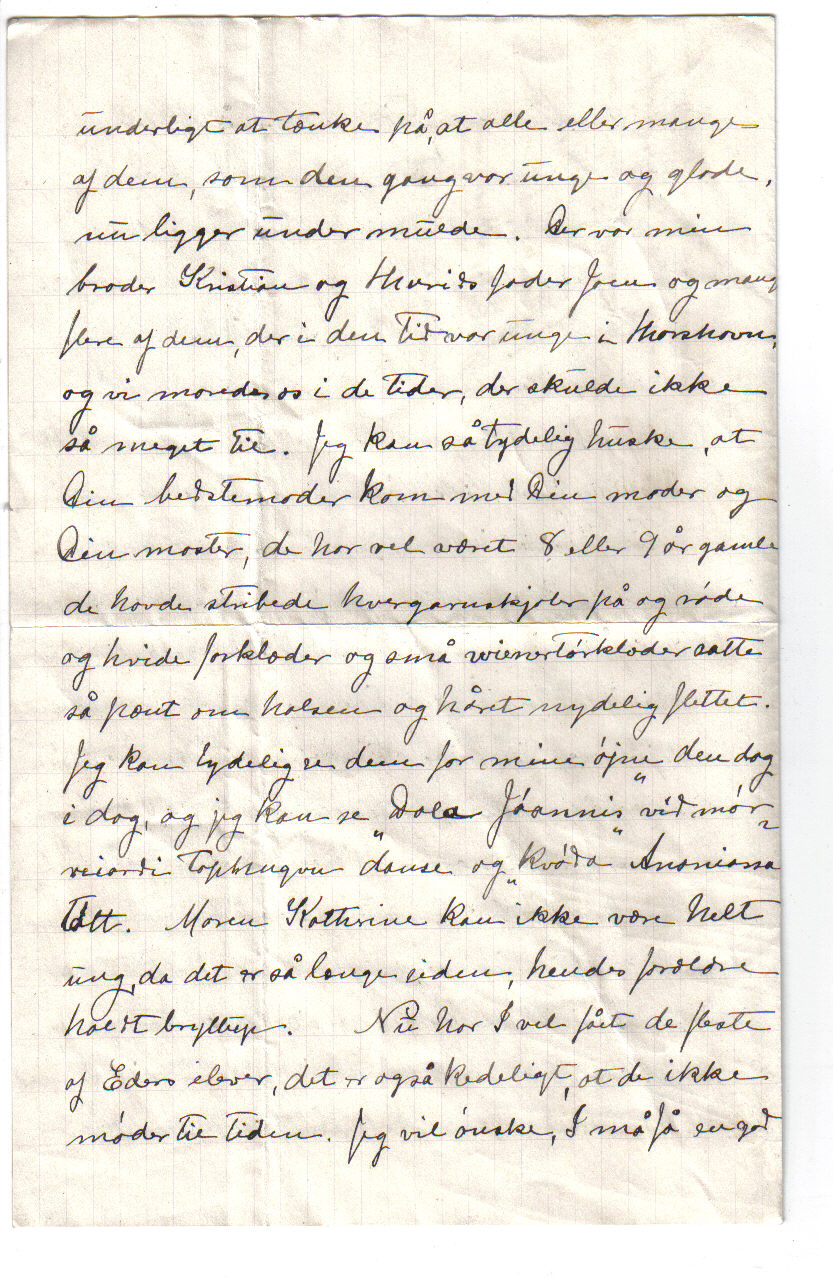 underligt at tænke på, at alle eller mange
af dem, som den gang var unge og glade,
nu ligger under mulde. Der var min
broder Kristian og Thurids fader Joen og mang
flere af dem, der i den tid var unge i Thorshavn,
og vi moredes os i de tider, der skulde ikke
så meget til. Jeg kan så tydelig huske, at
Din bedstemoder kom med Din moder og
Din moster, de har vel været 8 eller 9 år gamle
de havde stribede hvergarnskjoler på og røde
og hvide forklæder og små wienertørklæder satte
så pænt om halsen og håret nydelig flettet.
Jeg kan tydelig se dem for mine øjne den dag
i dag, og jeg kan se "Dala Jóannis" við mór-
veiardi topphugvu danse og "kvøða" Ananiassa
tátt. Maren Kathrine kan ikke være helt
ung, da det er så længe siden, hendes forældre
holdt bryllup. Nu har I vel fået de fleste
af Eders elever, det er også kedeligt, at de ikke
møder til tiden. Jeg vil ønske, I må få en god